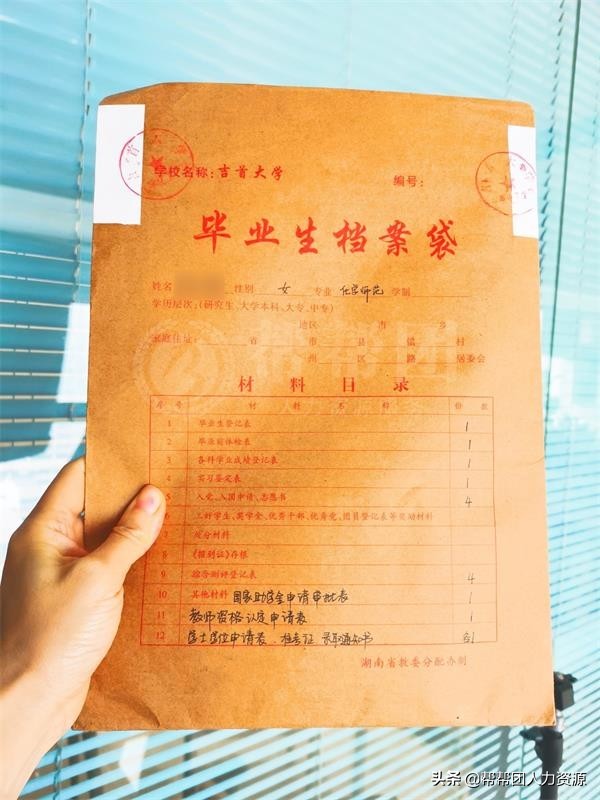 学校名称：吉首大学
编号：
毕业生档案袋
姓名 性别 女 专业 化学师范 学制
学历层次：（研究生、大学本科、大专、中专）
地区 市 乡
家庭住址： 省 市 县 镇 村
州 区 路 居委会
帮帮团
人力资源服务
材料目录
序号 材料名称 份数
1 毕业生登记表 1
2 毕业前体检表 1
3 各科学业成绩登记表 1
4 实习鉴定表 1
5 入党、入团申请、志愿书 4
6 三好学生、奖学金、优秀干部、优秀党、团员登记表等奖励材料
7 处分材料
8 《报到证》存根
9 综合测评登记表 4
10 其他材料 国家助学金申请审批表 1
11 教师资格认定申请表 1
12 学士学位申请表、准考证 录取通知书 各1
湖南省教委分配办制
头条@帮帮团人力资源